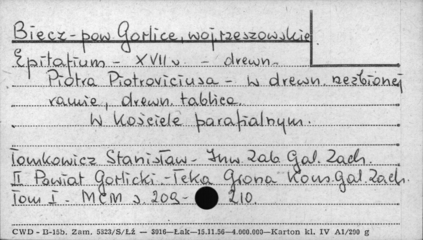 Biecz - pow Gorlice, woj. rzeszowskie
Epitafium - XVII w. - drewn.
Piotra Piotroviciusa - w drewn. rzeźbionej
ramie, drewn. tablica.
W kościele parafialnym.
Tomkowicz Stanisław - Inw Zab Gal. Zach.
II Powiat Gorlicki - Teka Grona Kons. Gal. Zach.
Tom I. - MCM s. 209 - 210.
CWD - D-15b. Zam. 5823/S/Łż — 3016—Łak—15.11.56—4.000.000—Karton kl. IV A1/200 g